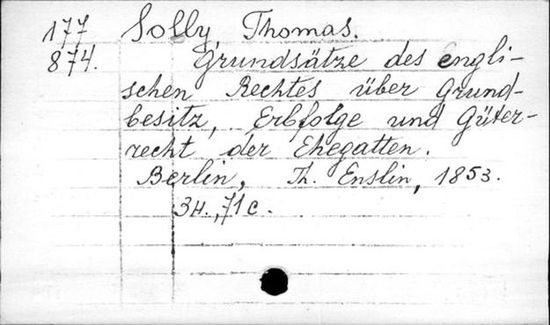 177 Solly Thomas.
874. Grundsätze des engli-
schen Rechtes über Grund-
besitz, Erbfolge und Güter-
recht der Ehegatten.
Berlin, Th. Enslin, 1853.
3н., 71 с.